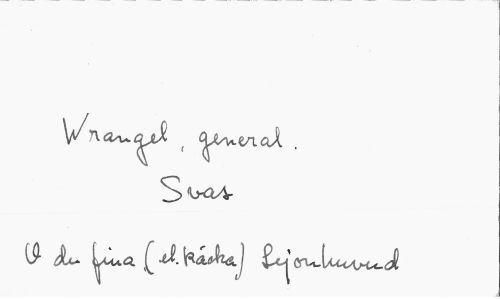 Wrangel, general.
Svas
O du fina (el. käcka) Lejonhuvud